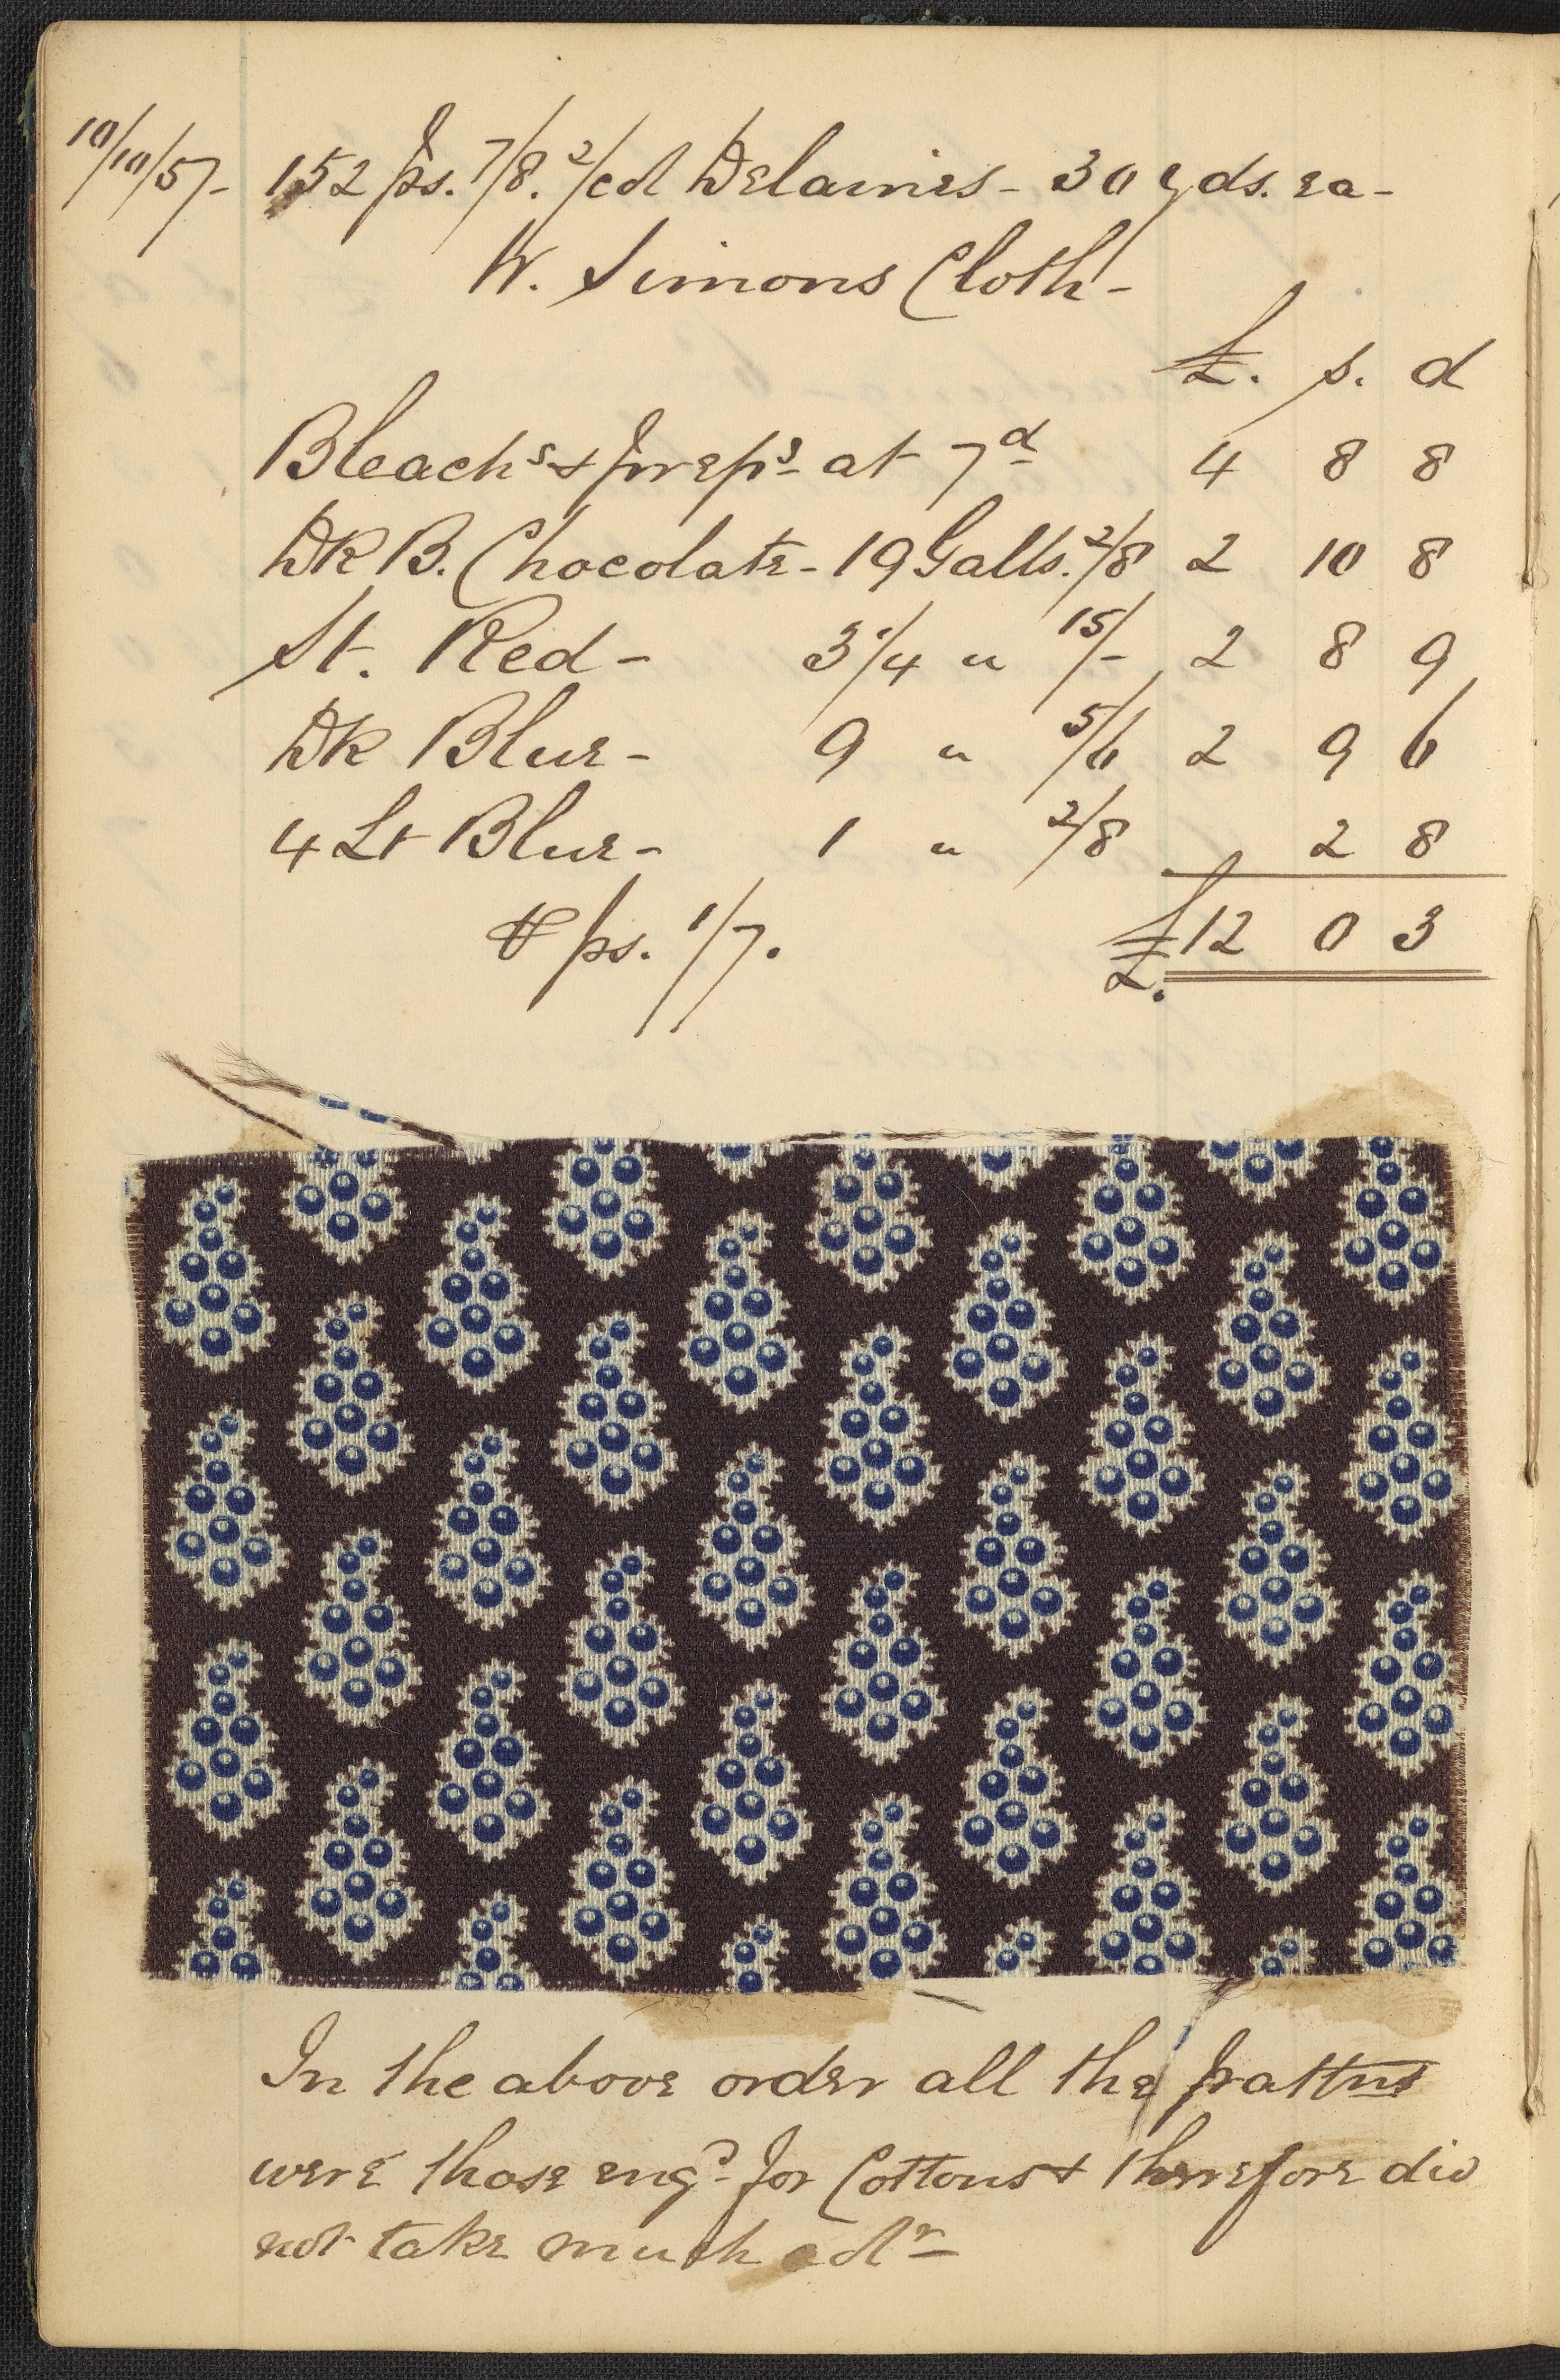 10/10/57- 152 ps. 7/8. 2/col Delaines - 30 yds. ea -
W. Simons Cloth -
£. s. d
Bleachs & preps at 7d 4 8 8
Dk B. Chocolate - 19 Galls. 2/8 2 10 8
St. Red - 3 1/4 " 15/- 2 8 9
Dk Blue - 9 " 5/6 2 9 6
4 Lt Blue - 1 " 2/8 2 8
℔ ps. 1/7. £12 0 3
In the above order all the pattns
were those engd for Cottons & therefore did
not take much colr -